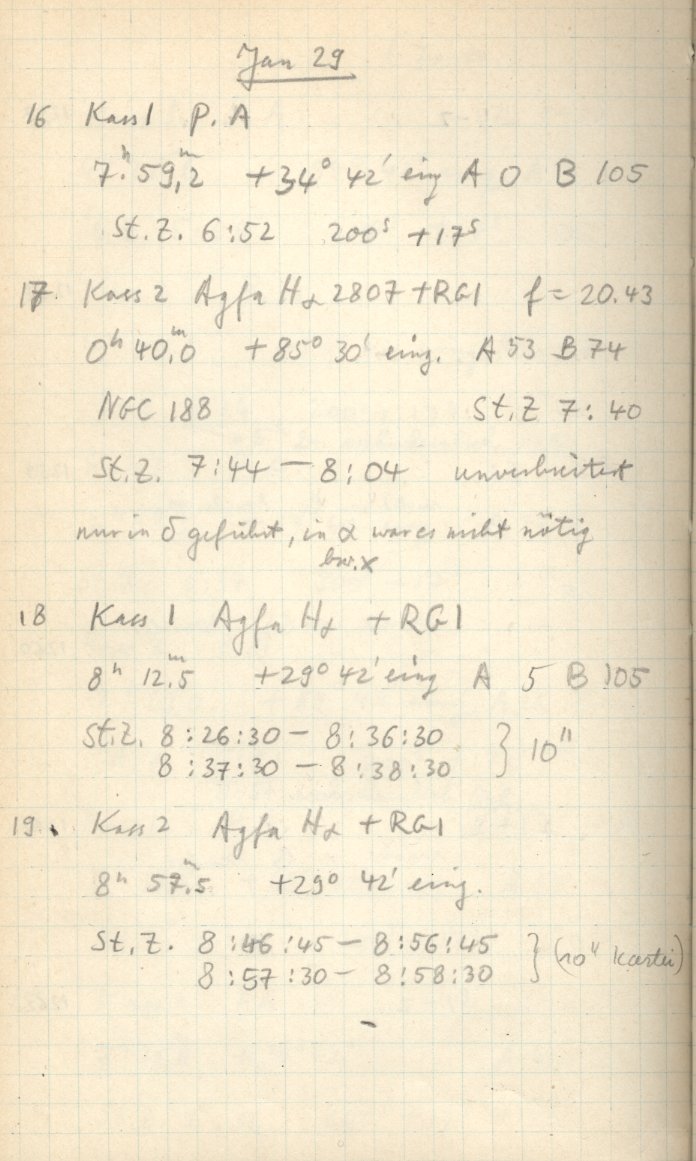 Jan 29
16 Kass 1 P. A
7ʰ 59,ᵐ2 +34° 42' eing A 0 B 105
St.Z. 6:52 200ˢ +17ˢ
17. Kass 2 Agfa Hα 2807 + RG1 f = 20.43
0ʰ 40,ᵐ0 +85° 30' eing. A 53 B 74
NGC 188 St.Z 7:40
St.Z. 7:44 — 8:04 unverbreitert
nur in δ geführt, in α war es nicht nötig
bw. x
18 Kass 1 Agfa Hα + RG1
8ʰ 12.ᵐ5 +29° 42' eing A 5 B 105
St.Z. 8:26:30 — 8:36:30 } 10"
8:37:30 — 8:38:30
19. Kass 2 Agfa Hα + RG1
8ʰ 57.ᵐ5 +29° 42' eing.
St.Z. 8:46:45 — 8:56:45 } (10" Kartei)
8:57:30 — 8:58:30